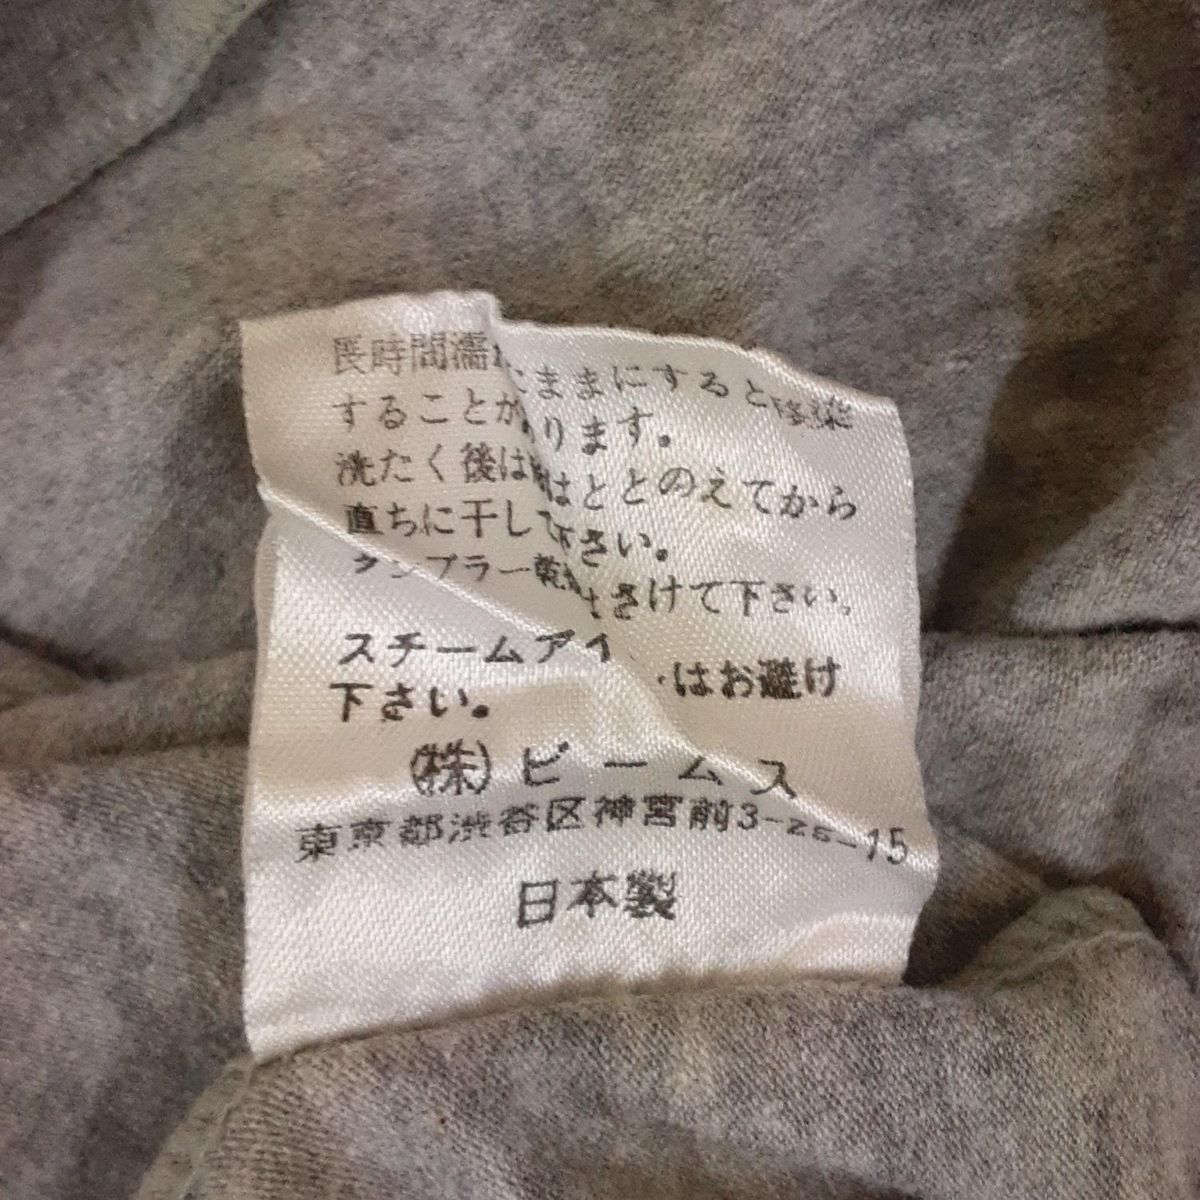 長時間濡れたままにすると移染
することがあります。
洗たく後は形はととのえてから
直ちに干して下さい。
タンブラー乾燥はさけて下さい。
スチームアイ はお避け
下さい。
(株)ビームス
東京都渋谷区神宮前3-25-15
日本製